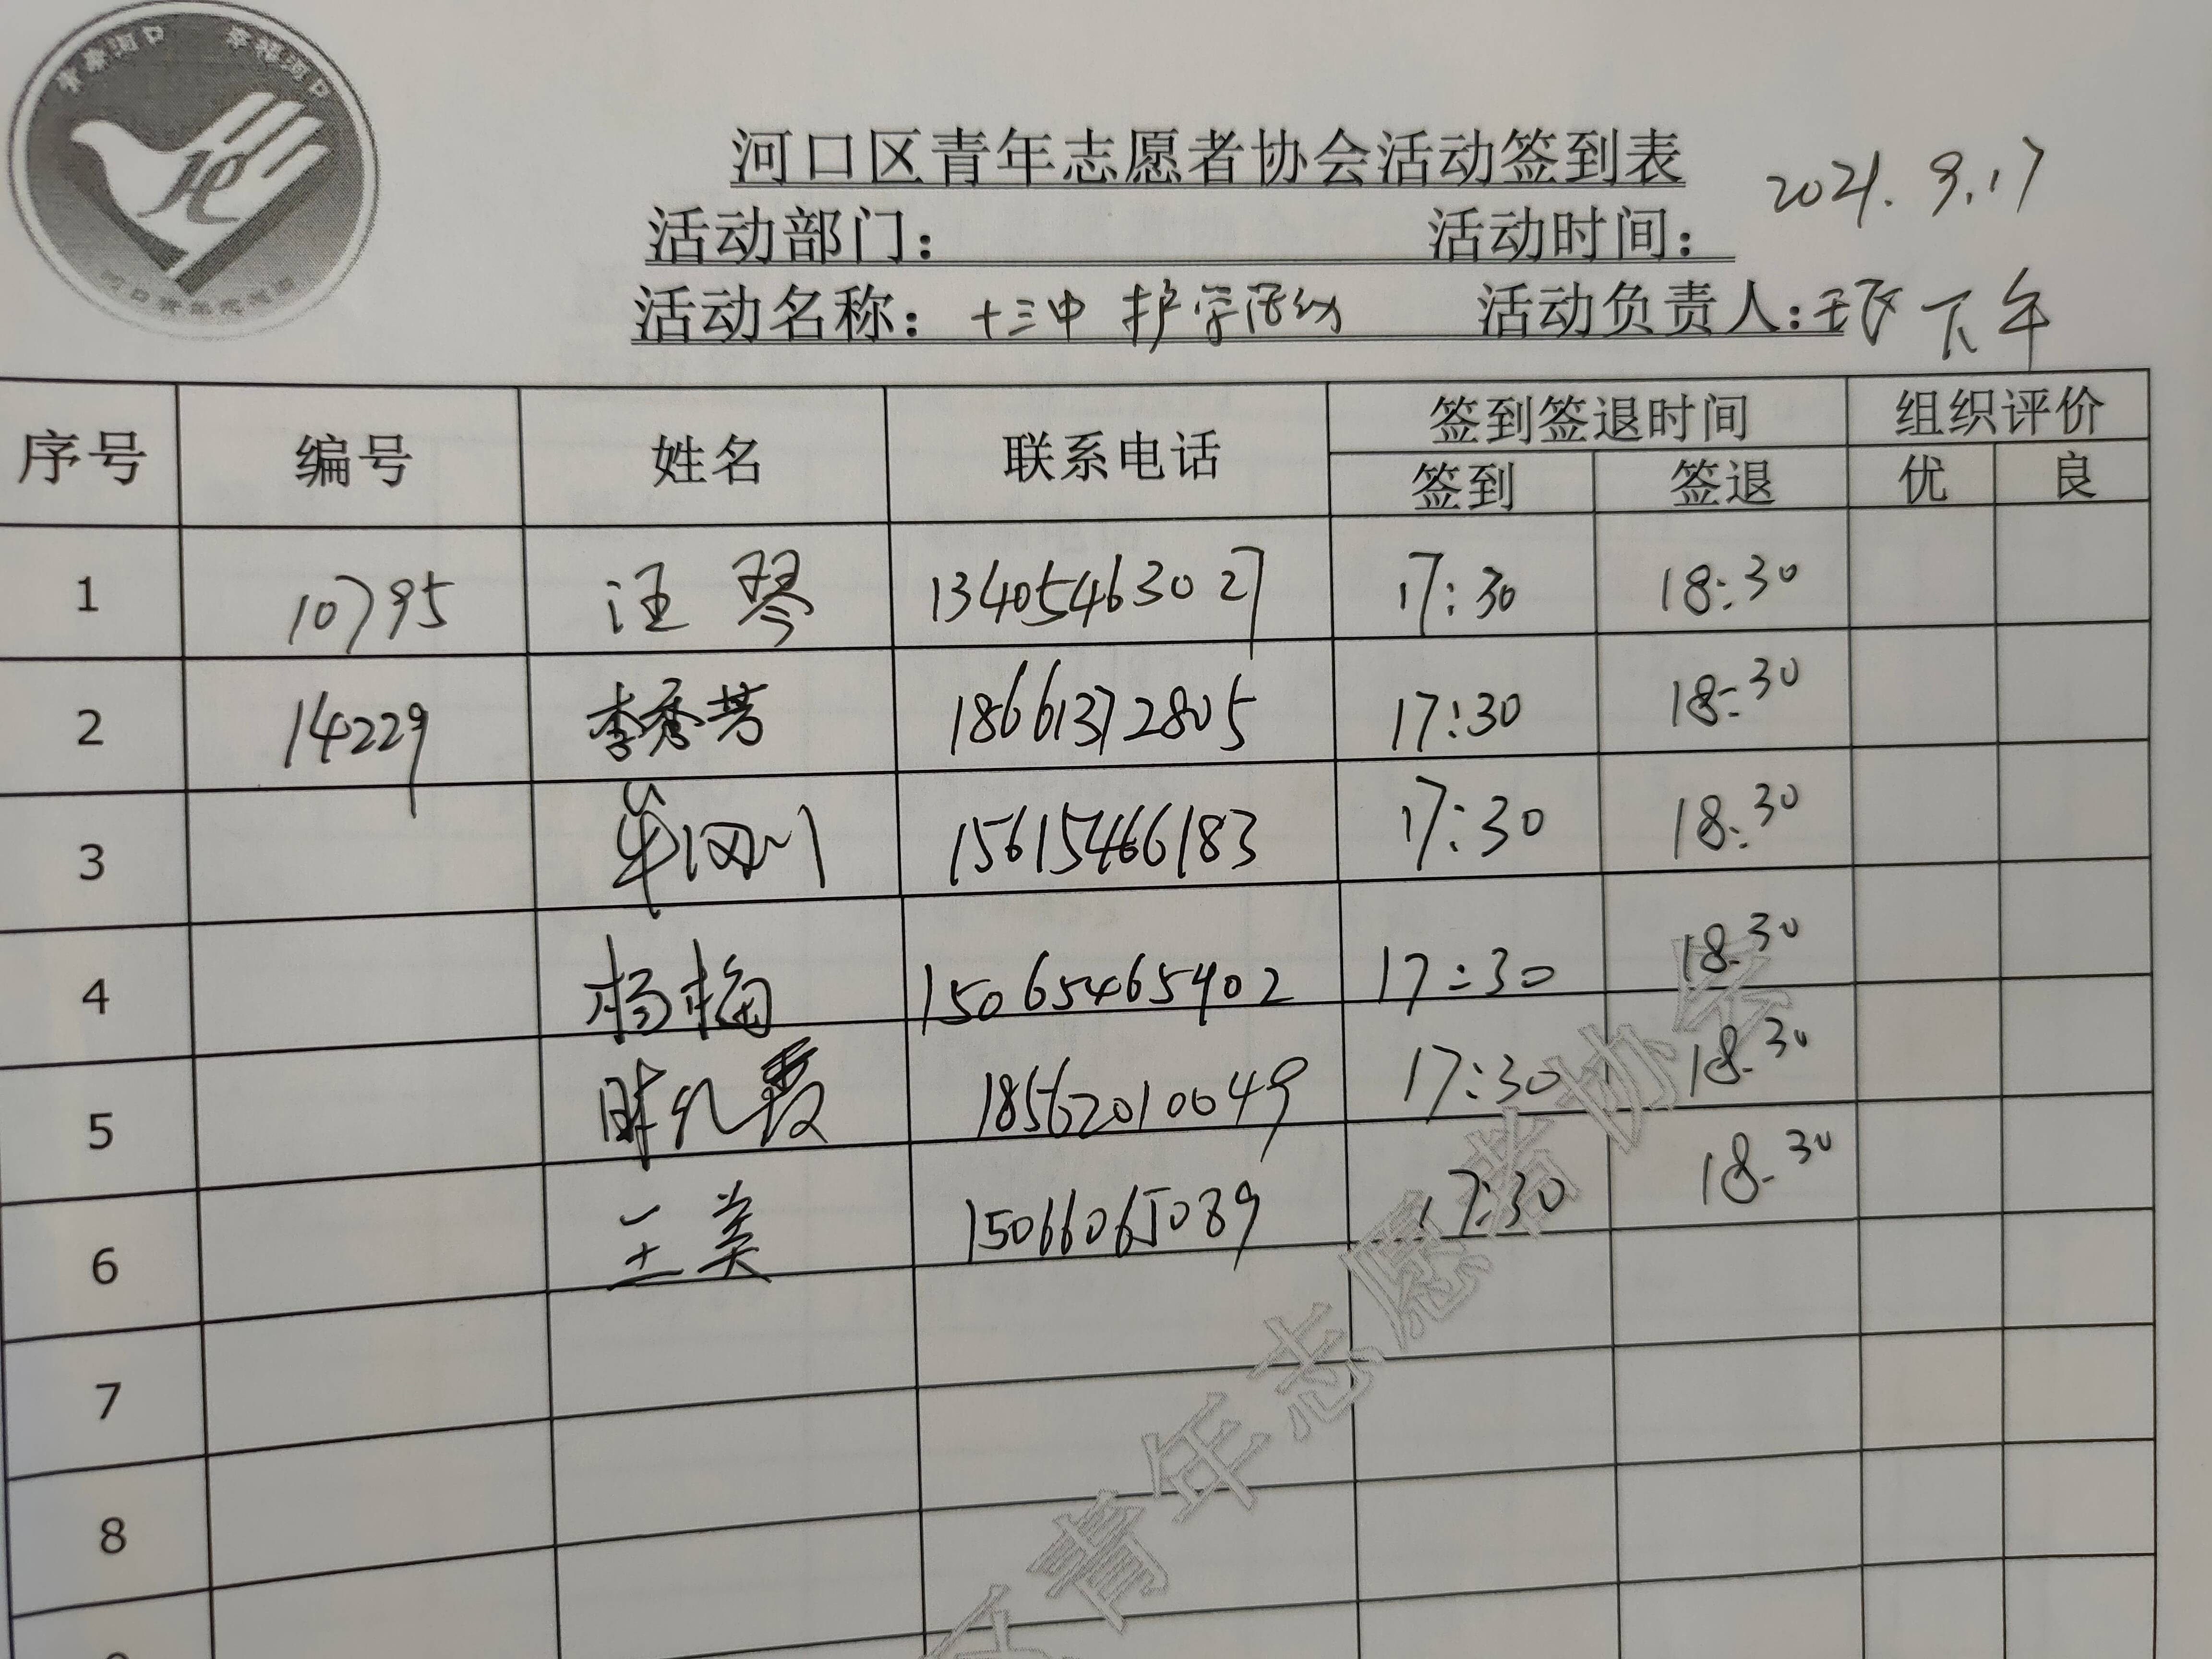 青春河口 幸福河口
河口区青年志愿者协会活动签到表
2021.9.17
活动部门： 活动时间：
活动名称：十三中 护学活动 活动负责人： 下午
序号 编号 姓名 联系电话 签到签退时间 组织评价
签到 签退 优 良
1 10795 汪琴 13405463027 17:30 18:30
2 14229 李秀芳 18661372805 17:30 18:30
3 15615466183 17:30 18:30
4 杨梅 15065465902 17:30 18:30
5 18562010049 17:30 18:30
6 王美 15066065089 17:30 18-30
7
8
区青年志愿者协会